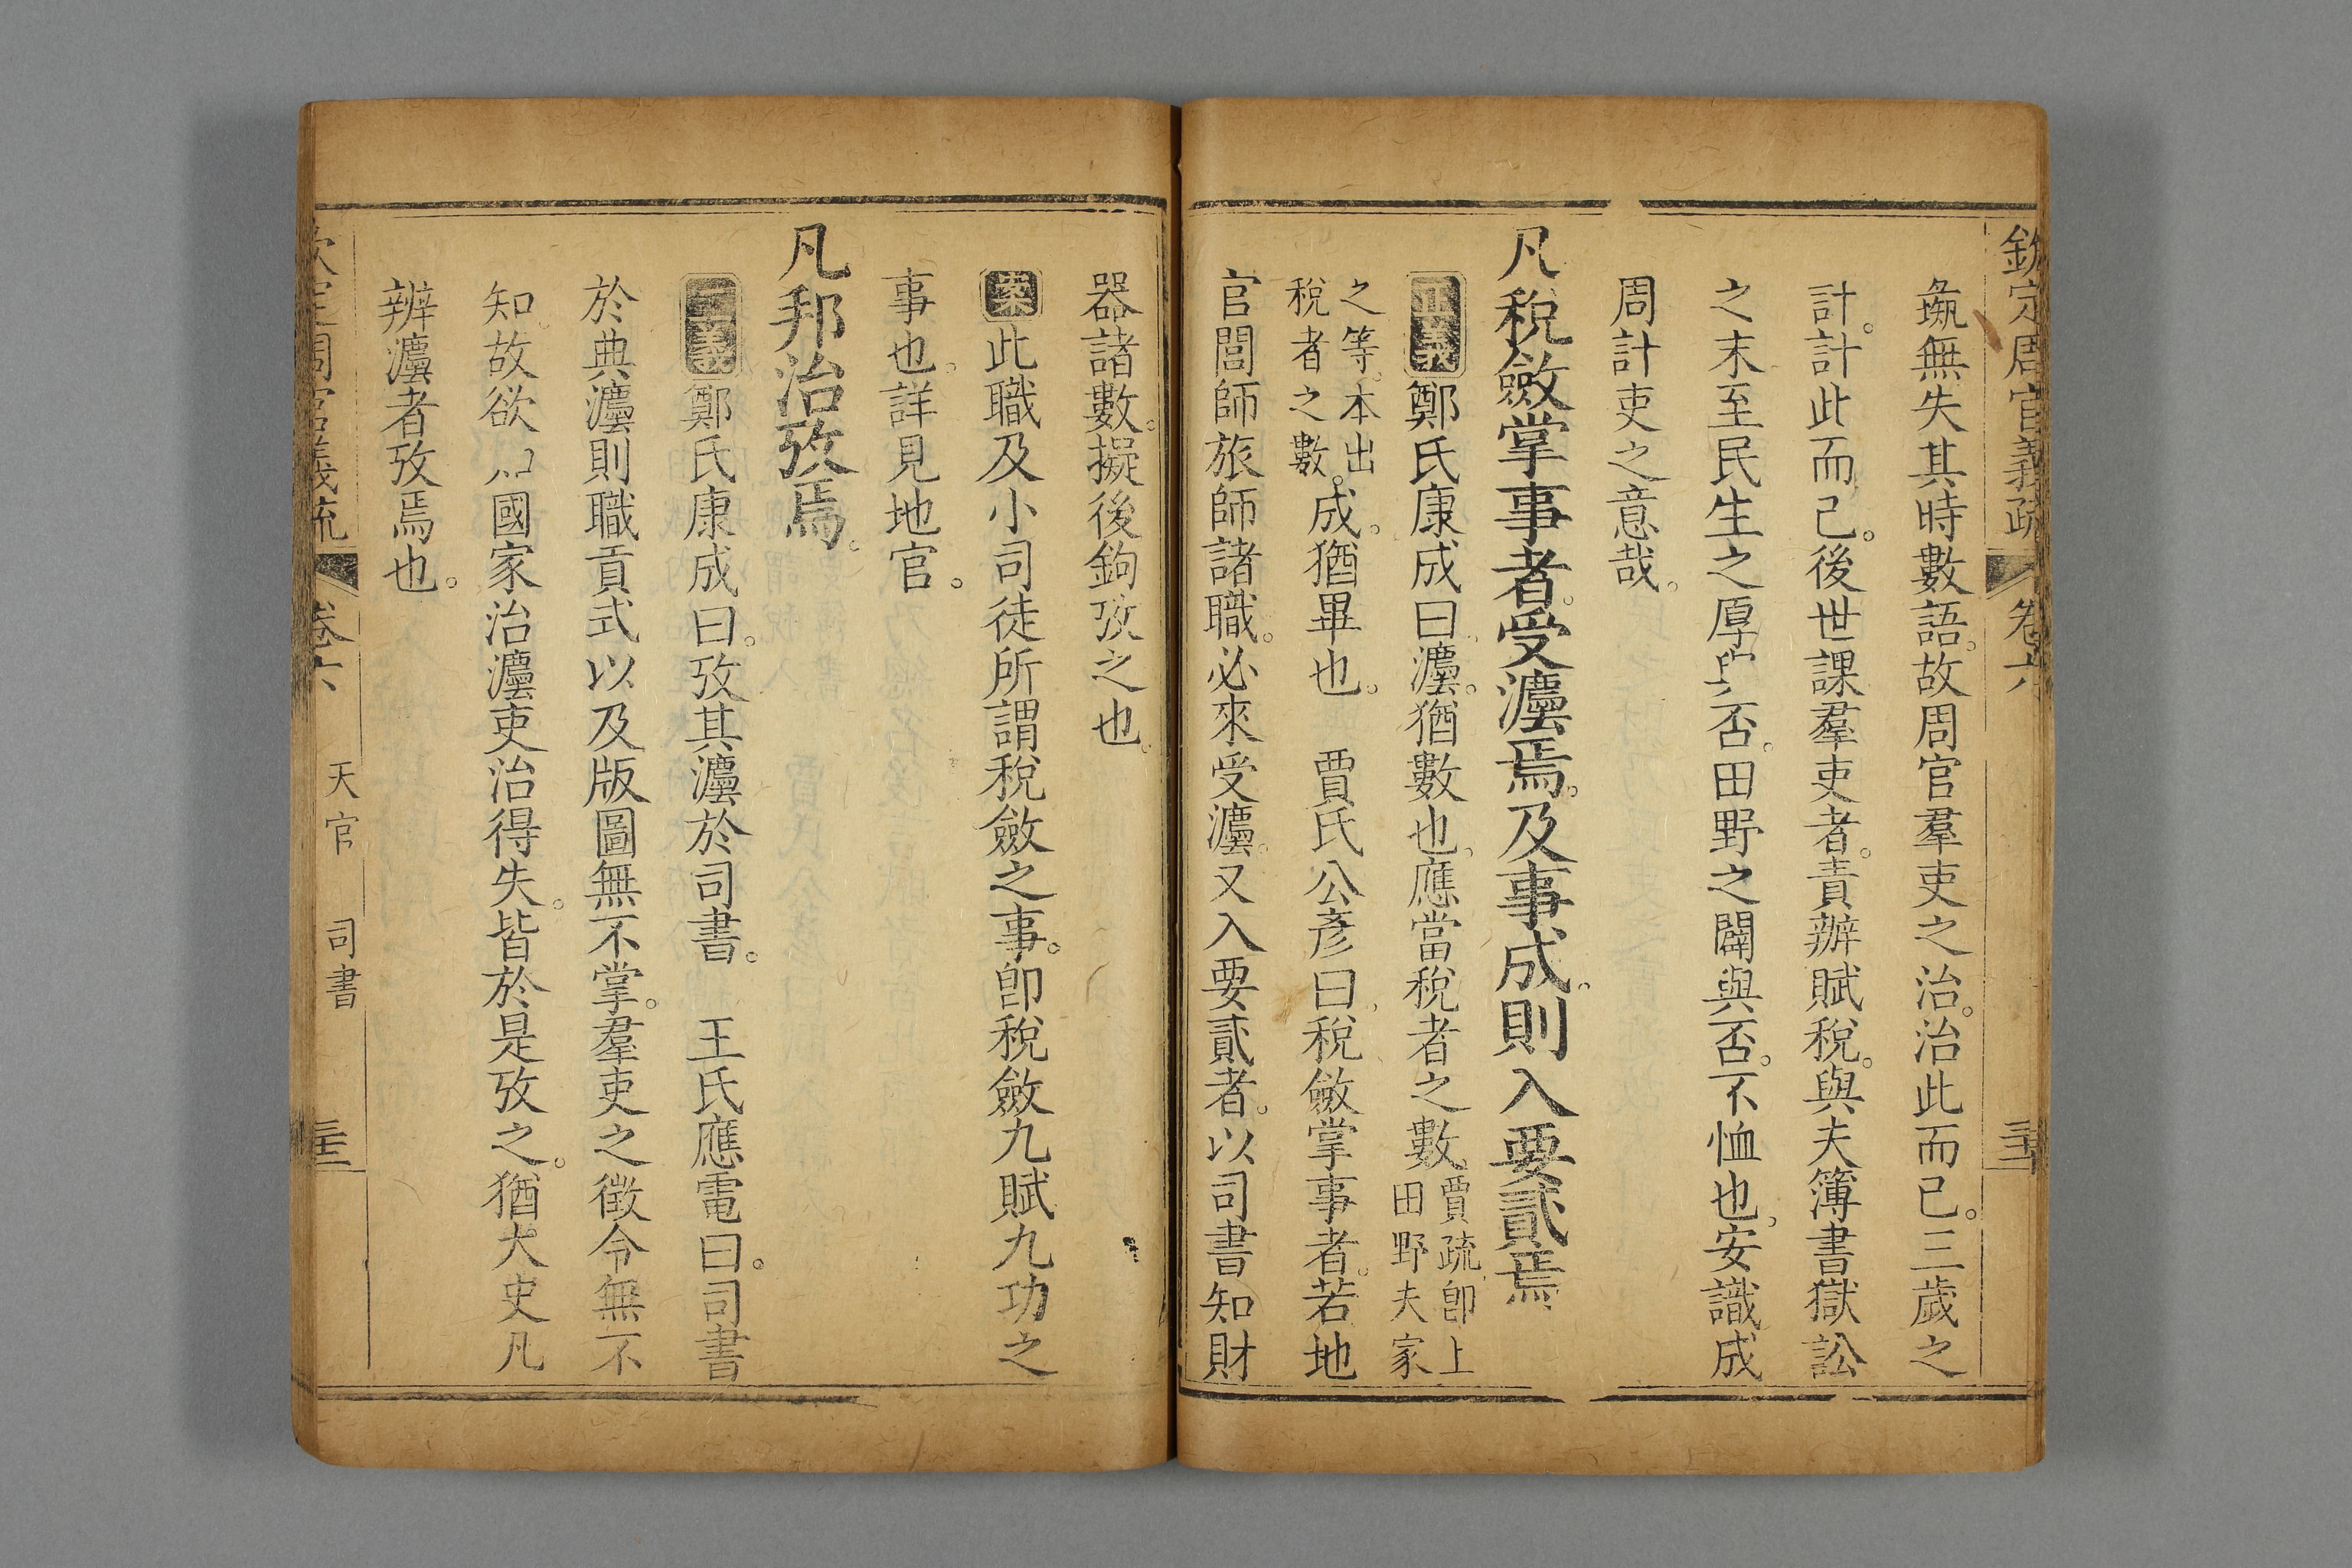 欽定周官義疏 卷六
蓺無失其時數語。故周官羣吏之治。治此而已。三歲之
計。計此而已。後世課羣吏者。責辦賦稅。與夫簿書獄訟
之末至民生之厚與否。田野之闢與否。不恤也。安識成
周計吏之意哉。
凡稅斂掌事者。受灋焉。及事成。則入要貳焉。
正義鄭氏康成曰。灋。猶數也。應當稅者之數賈疏卽上田野夫家
之等。本出稅者之數。成。猶畢也。 賈氏公彥曰。稅斂掌事者。若地
官閭師旅師諸職。必來受灋。又入要貳者。以司書知財
器諸數。擬後鉤攷之也。
案此職及小司徒所謂稅斂之事。卽稅斂九賦九功之
事也。詳見地官。
凡邦治攷焉。
正義鄭氏康成曰。攷其灋於司書。 王氏應電曰。司書
於典灋則職貢式以及版圖無不掌。羣吏之徵令無不
知。故欲以國家治灋吏治得失。皆於是攷之。猶大史凡
辨灋者攷焉也。
欽定周官義疏 卷六 天官 司書